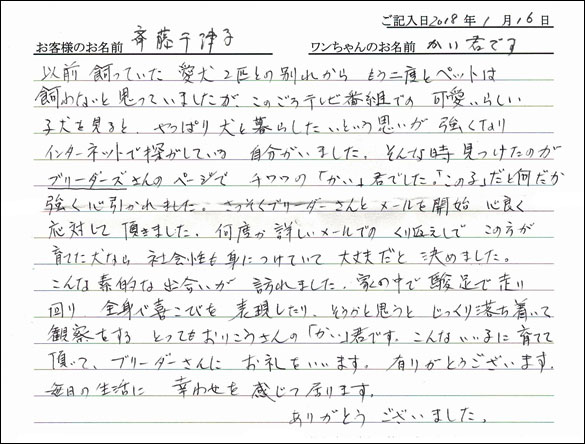 ご記入日2018年1月16日
お客様のお名前 斉藤千津子 ワンちゃんのお名前 かい君です
以前飼っていた愛犬2匹との別れからもう二度とペットは
飼わないと思っていましたが、このごろテレビ番組での可愛いらしい
子犬を見ると、やっぱり犬と暮らしたいという思いが強くなり
インターネットで探がしている自分がいました。そんな時見つけたのが
ブリーダーズさんのページでチワワの「かい」君でした。「この子」だと何だか
強く心引かれました。さっそくブリーダーさんとメールを開始 心良く
応対して頂きました。何度か詳しいメールでのくり返えしでこの方が
育てた犬なら社会性も身につけていて大丈夫だと決めました。
こんな素的な出会いが訪れました。家の中で駿足で走り
回り 全身で喜こびを表現したり、そうかと思うとじっくり落ち着いて
観察をするとってもおりこうさんの「かい」君です。こんないい子に育てて
頂いて、ブリーダーさんにお礼をいいます。有りがとうございます。
毎日の生活に 幸わせを感じて居ります。
ありがとうございました。